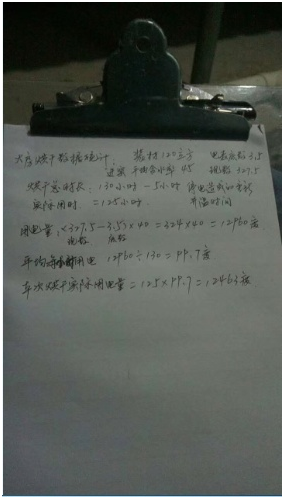 烘干数据统计: 装材120立方 电表底数3.5
进窑平均含水率45 现数327.5
烘干总时长: 130小时-5小时 停电造成的重新
实际用时: =125小时. 升温时间
用电量:(327.5-3.5)×40=324×40=12960度
现数 底数
平均每小时用电 12960÷130=99.7度
本次烘干实际用电量=125×99.7=12463度